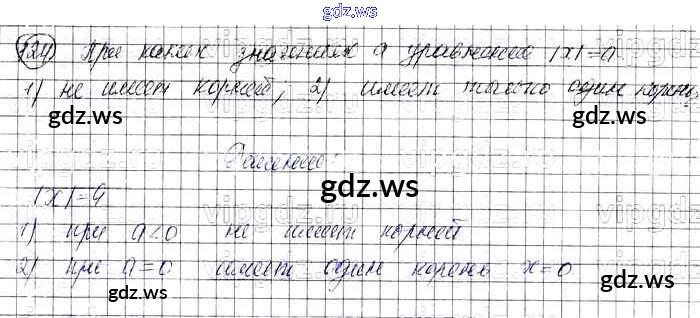 gdz.ws
124 При каких значениях a уравнение |x|=a
1) не имеет корней; 2) имеет только один корень.
gdz.ws gdz.ws
Решение:
gdz.ws
|x|=a
1) при a<0 не имеет корней
2) при a=0 имеет один корень x=0
gdz.ws gdz.ws
gdz.ws